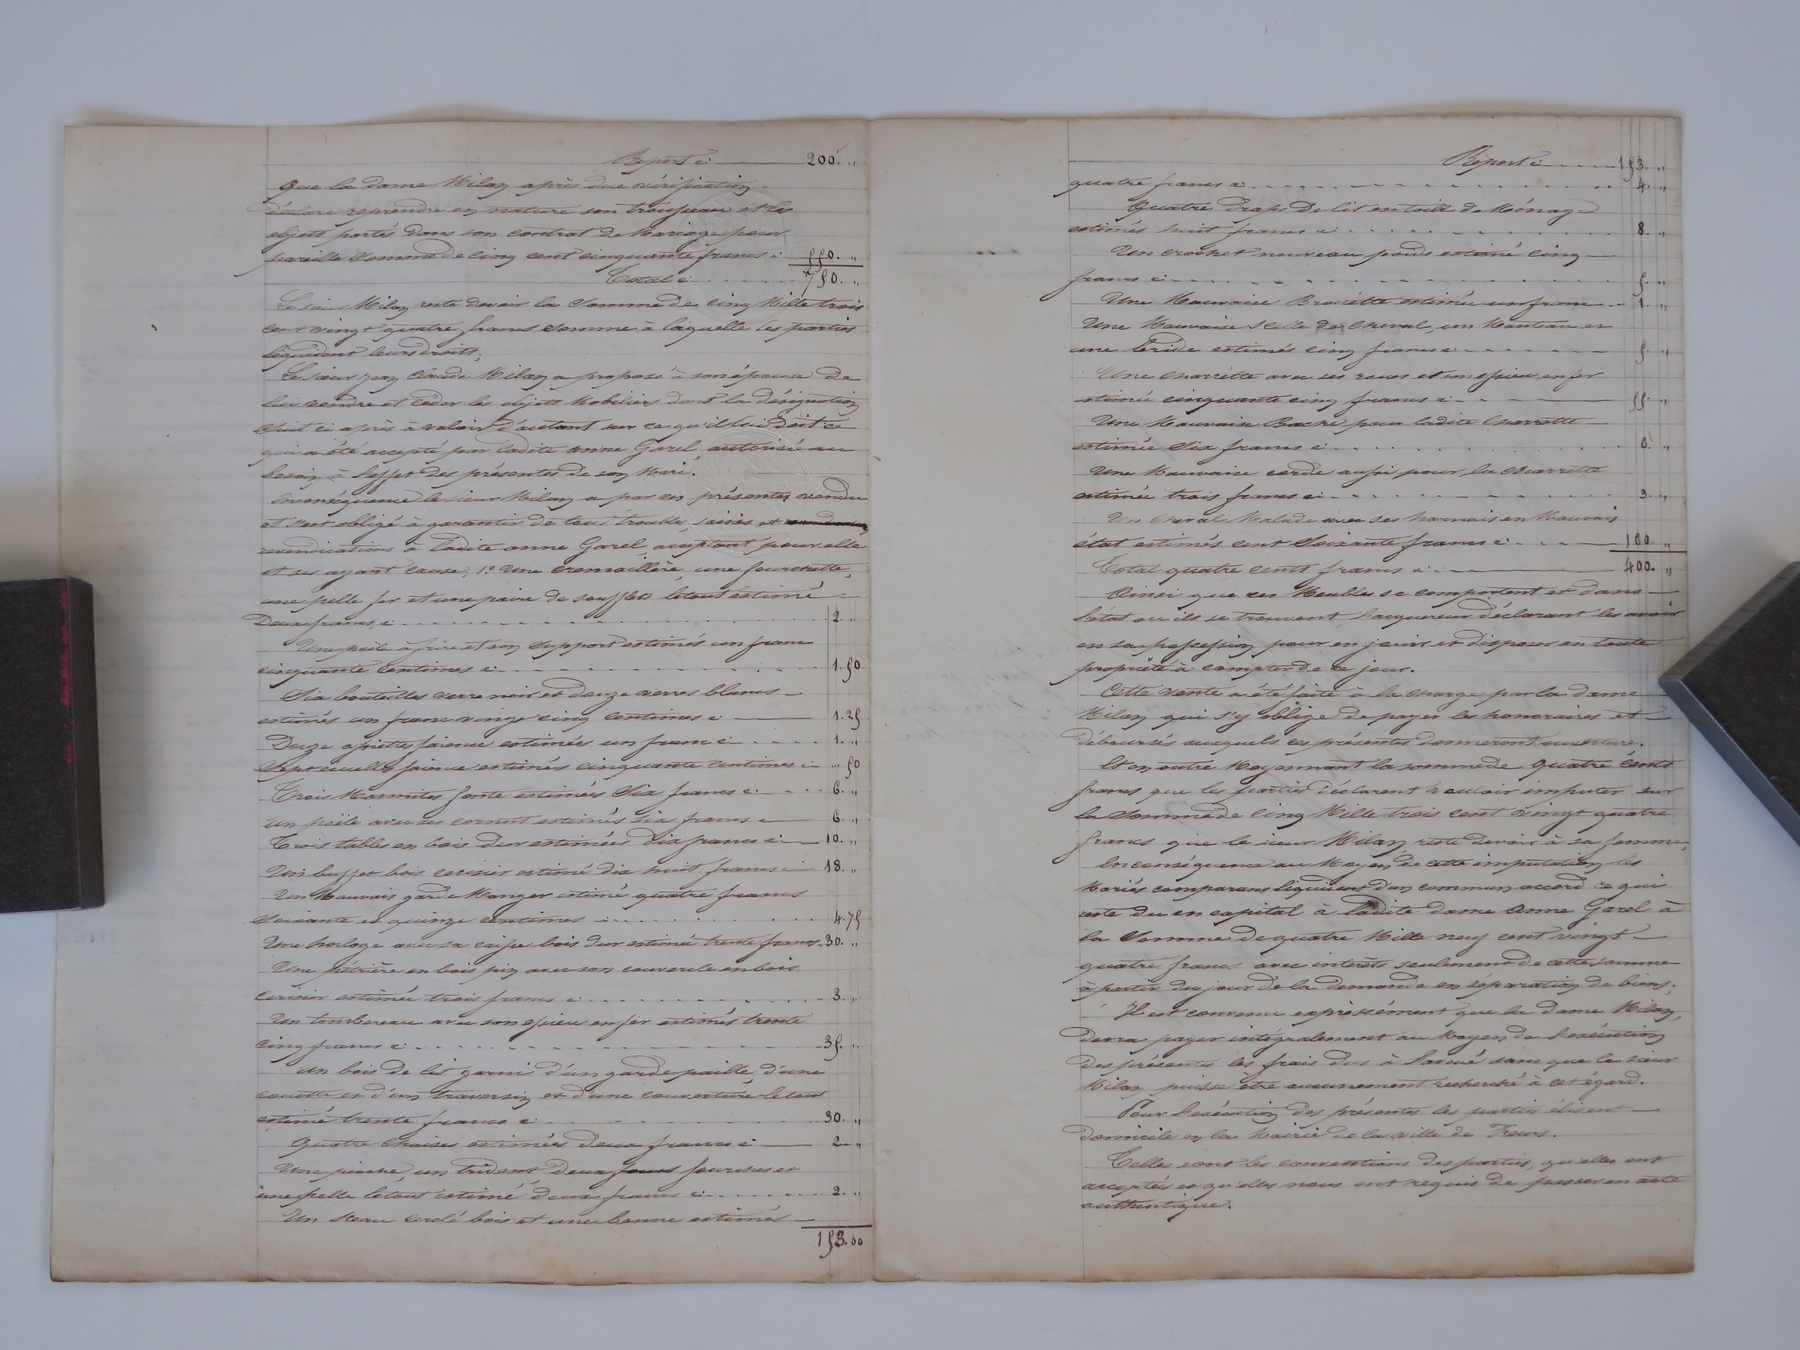 Report ci 200. "
que la dame Milan après due vérification
déclare reprendre en nature son trousseau et les
objets portés dans son contrat de Mariage pour
pareille Somme de cinq cent cinquante francs ci 550. "
Total ci 750. "
Le sieur Milan reste devoir la Somme de cinq Mille trois
cent vingt quatre francs somme à laquelle les parties
liquident leurs droits;
Le sieur Jean Claude Milan a proposé à son épouse de
lui vendre et céder les objets Mobiliers dont la Désignation
suit ci après à valoir d'autant sur ce qu'il lui doit ce
qui a été accepté par ladite anne Garel, autorisée au
besoin à l'effet des présentes de son Mari.
En conséquence le sieur Milan a par ces présentes vendu
et s'est obligé à garantir de tous troubles, saisies et
revendications à ladite anne Garel acceptant pour elle
et ses ayant cause, 1º Une cremaillère, une fourchette,
une pelle fer et une paire de soufflets le tout estimé
Deux francs ci 2. "
Une poile à frire et son support estimés un franc
cinquante centimes ci 1.50
Six bouteilles verre noir et douze verres blancs
estimés un franc vingt cinq centimes ci 1.25
Douze assiettes faience estimées un franc ci 1. "
Sept écuelles faience estimés cinquante centimes ci " 50
Trois Marmites fonte estimées Six francs ci 6. "
un poële avec ses cornets estimés six francs ci 6. "
Trois tables en bois dur estimées dix francs ci 10. "
Un buffet bois cerisier estimé dix huit francs ci 18. "
Un Mauvais garde Manger estimé quatre francs
soixante et quinze centimes ci 4.75
Une horloge avec sa caisse bois dur estimée trente francs 30. "
Une pétrière en bois pin avec son couvercle en bois
cerisier estimée trois francs ci 3. "
Un tombereau avec son essieu en fer estimés trente
cinq francs ci 35. "
Un bois de lit garni d'un garde paille d'une
couette et d'un traversin et d'une couverture le tout
estimé trente francs ci 30. "
Quatre chaises estimées deux francs ci 2. "
Une pioche, un trident deux fourches et
une pelle le tout estimé deux francs ci 2. "
Un sceau cerclé bois et une benne estimés
153.00
Report ci 153. "
quatre francs ci 4. "
Quatre Draps De lit en toile de Ménage
estimés huit francs ci 8. "
Un crochet nouveau poids estimé cinq
francs ci 5. "
Une Mauvaise Brouette estimée un franc 1. "
Une Mauvaise Selle de cheval, un Manteau et
une bride estimés cinq francs ci 5. "
Une charrette avec ses roues et son essieu en fer
estimée cinquante cinq francs ci 55. "
Une Mauvaise Bache pour ladite charrette
estimée Six francs ci 6. "
Une Mauvaise corde aussi pour la charrette
estimée trois francs ci 3. "
Un cheval Malade avec ses harnais en Mauvais
état estimés cent Soixante francs ci 160. "
Total quatre cents francs ci 400. "
Ainsi que ces Meubles se comportent et dans
l'état où ils se trouvent l'acquereur déclarant les avoir
en sa possession pour en jouir et disposer en toute
propriété à compter de ce jour.
Cette vente a été faite à la charge par la dame
Milan qui s'y oblige de payer les honoraires et
déboursés auxquels ces présentes donneront ouverture.
Et en outre Moyennant la somme de quatre cents
francs que les parties déclarent vouloir imputer sur
la Somme de cinq Mille trois cent vingt quatre
francs que le sieur Milan reste devoir à sa femme,
En conséquence au Moyen de cette imputation les
Mariés comparans liquident d'un commun accord ce qui
reste du en capital à ladite dame Anne Garel à
la Somme de quatre Mille neuf cent vingt
quatre francs avec intérêts seulement de cette somme
à partir du jour de la demande en séparation de biens.
Il est convenu expressément que la dame Milan,
devra payer intégralement au Moyen de l'exécution
des présentes les frais dus à l'avoué sans que le sieur
Milan puisse être aucunement recherché à cet égard.
Pour l'exécution des présentes les parties élisent
domicile en la Mairie de la ville de Feurs.
Telles sont les conventions des parties, qu'elles ont
acceptées et qu'elles nous ont requis de passer en acte
authentique.